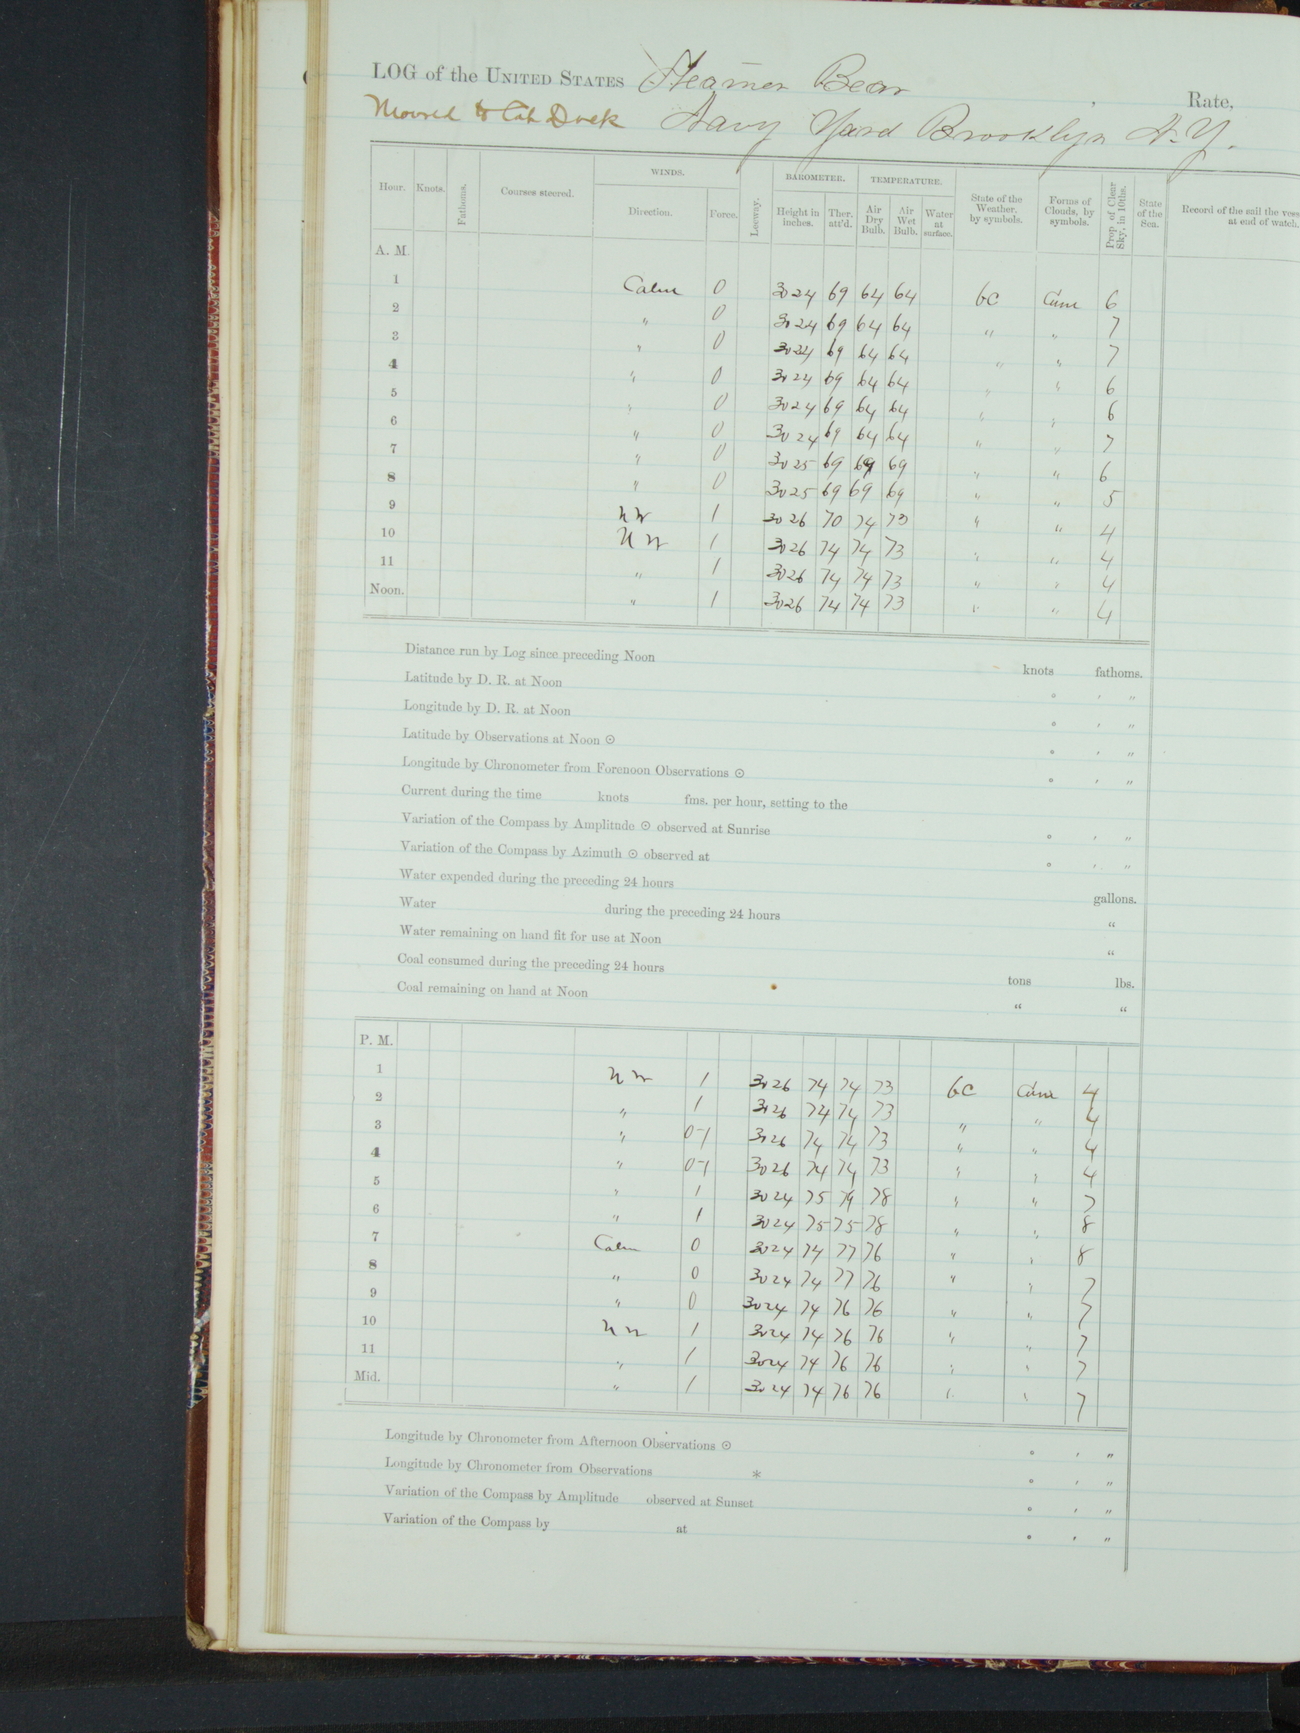 LOG of the UNITED STATES Steamer Bear Rate,
Moored to Cob Dock Navy Yard Brooklyn N.Y.
Hour. Knots. Fathoms. Courses steered. WINDS. Direction. Force. Leeway. BAROMETER. Height in inches. Ther. att'd. TEMPERATURE. Air Dry Bulb. Air Wet Bulb. Water at surface. State of the Weather, by symbols. Forms of Clouds, by symbols. Prop. of Clear Sky, in 10ths. State of the Sea. Record of the sail the ves at end of watch.
A. M.
1 Calm 0 3024 69 64 64 bc Cum 6
2 " 0 3024 69 64 64 " " 7
3 " 0 3024 69 64 64 " " 7
4 " 0 3024 69 64 64 " " 6
5 " 0 3024 69 64 64 " " 6
6 " 0 3024 69 64 64 " " 7
7 " 0 3025 69 69 69 " " 6
8 " 0 3025 69 69 69 " " 5
9 NW 1 3026 70 74 73 " " 4
10 NW 1 3026 74 74 73 " " 4
11 " 1 3026 74 74 73 " " 4
Noon. " 1 3026 74 74 73 " " 4
Distance run by Log since preceding Noon knots fathoms.
Latitude by D. R. at Noon ° ' "
Longitude by D. R. at Noon ° ' "
Latitude by Observations at Noon ☉ ° ' "
Longitude by Chronometer from Forenoon Observations ☉ ° ' "
Current during the time knots fms. per hour, setting to the
Variation of the Compass by Amplitude ☉ observed at Sunrise ° ' "
Variation of the Compass by Azimuth ☉ observed at ° ' "
Water expended during the preceding 24 hours gallons.
Water during the preceding 24 hours "
Water remaining on hand fit for use at Noon "
Coal consumed during the preceding 24 hours tons lbs.
Coal remaining on hand at Noon " "
P. M.
1 NW 1 3026 74 74 73 bc Cum 4
2 " 1 3026 74 74 73 " " 4
3 " 0-1 3026 74 74 73 " " 4
4 " 0-1 3026 74 74 73 " " 4
5 " 1 3024 75 79 78 " " 7
6 " 1 3024 75 75 78 " " 8
7 Calm 0 3024 74 77 76 " " 8
8 " 0 3024 74 77 76 " " 7
9 " 0 3024 74 76 76 " " 7
10 NW 1 3024 74 76 76 " " 7
11 " 1 3024 74 76 76 " " 7
Mid. " 1 3024 74 76 76 " " 7
Longitude by Chronometer from Afternoon Observations ☉ ° ' "
Longitude by Chronometer from Observations * ° ' "
Variation of the Compass by Amplitude observed at Sunset ° ' "
Variation of the Compass by at ° ' "